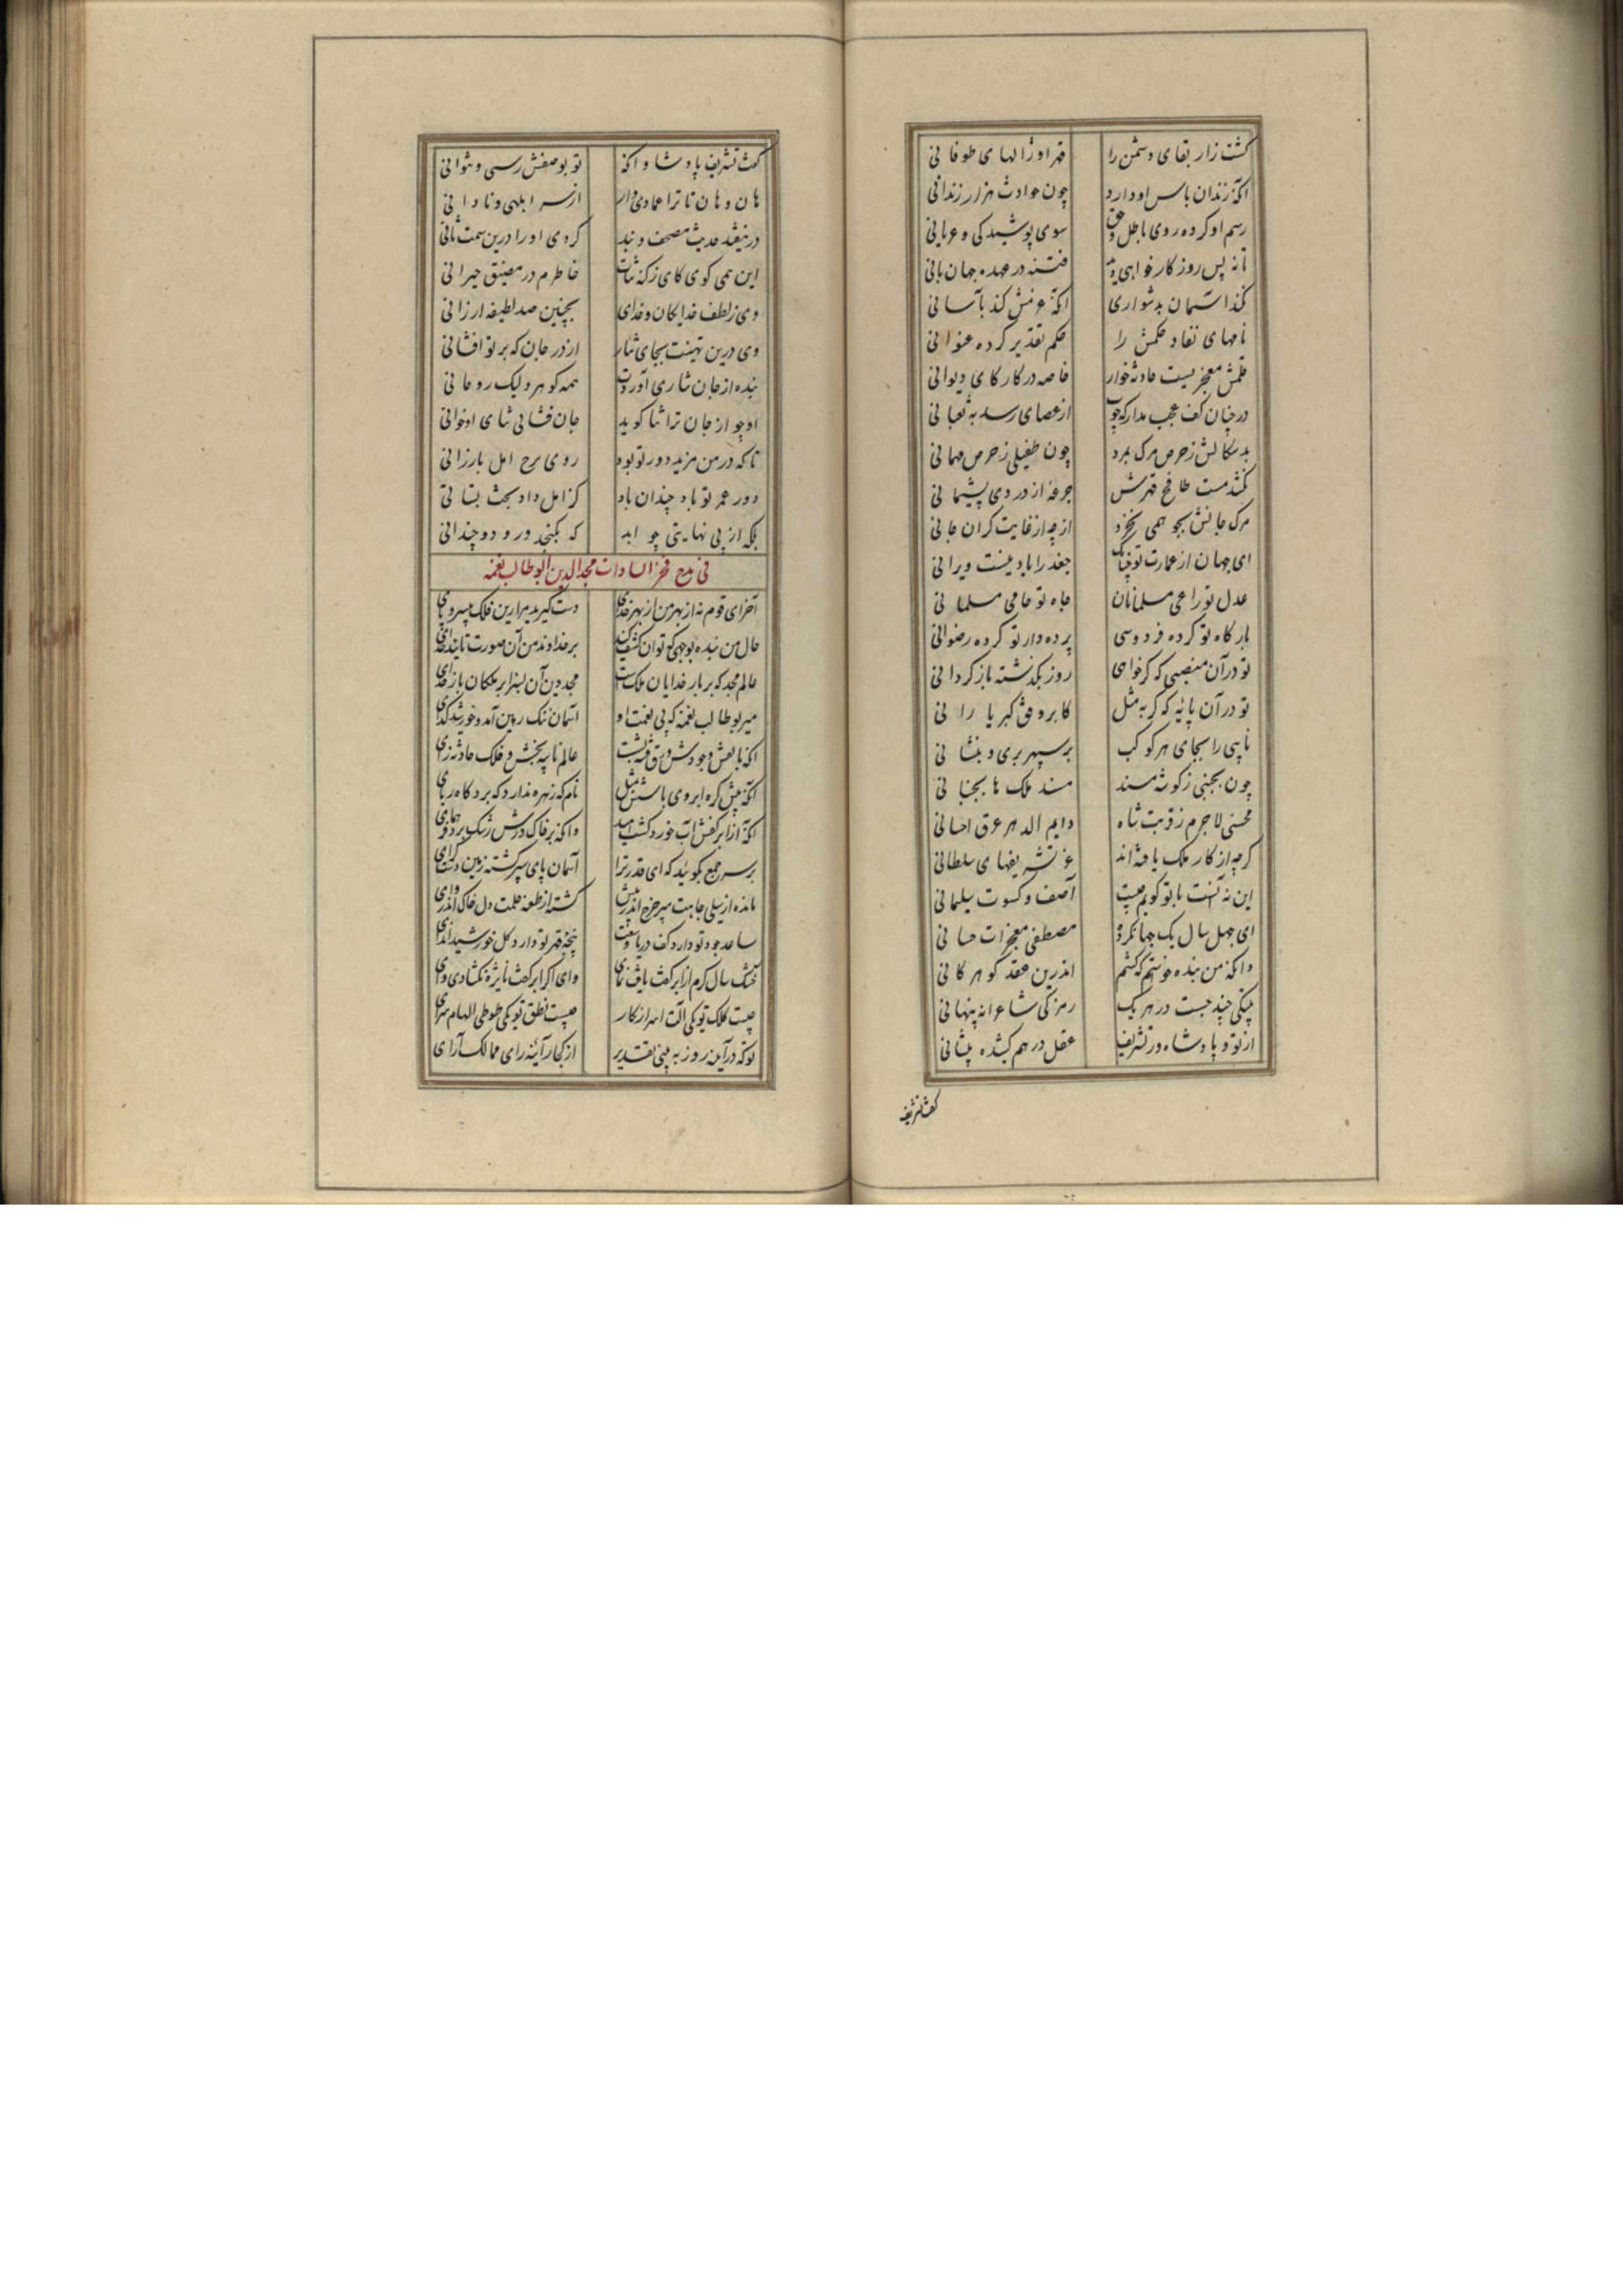 کشت زار بقای دشمن را قهر او ژالهای طوفانی
آنکه زندان باس او دارد چون حوادث هزار زندانی
رسم او کرده روی باطل و حق سوی پوشیدکی و عریانی
تا نه بس روزکار خواهی دید فتنه در عهده جهان بانی
نکند آسمان بدشواری آنکه عزمش کند بآسانی
نامهای نفاد حکمش را حکم تقدیر کرده عنوانی
قلمش معجزیست حادثه خوار خاصه در کار کای دیوانی
در چنان کف عجب مدار که چوب از عصای رسد به ثعبانی
بد سکالش ز حرص مرک بمرد چون طفیلی ز حرص مهمانی
نکشد مست طافح قهرش جرعه از دردی پشیمانی
مرک جانش بجو همی نخرد از چه از غایت کران جانی
ای جهان از عمارت تو چنانک جغد را یاد نیست ویرانی
عدل تو راعی مسلمانان جاه تو حامی مسلمانی
بارکاه تو کرده فردوسی پرده دار تو کرده رضوانی
تو در آن منصبی که کر خواهی روز بکذشته باز کردانی
تو در آن پائه که کر به مثل کابر وفق کبریا رانی
نایبی را بجای هر کوکب بر سپهر بری و بنشانی
چون بجنبی ز کوشه مسند مسند ملک ها بجنبانی
محسنی لاجرم ز قربت شاه دایم الدهر عرق احسانی
کرچه از کار ملک یافته اند عز تشریفهای سلطانی
این نه آنست با تو کویم چیست آصف و کسوت سلیمانی
ای چهل سال یک جهان کرده مصطفی معجزات حسانی
وانکه من بنده خواستم که کشم اندرین عقد کوهر کانی
بیتکی چند چست در هر یک رمزکی شاعرانه پنهانی
از تو و پادشاه و ز تشریف عقل در هم کشیده پیشانی
کفت تشریف
کفت تشریف پادشا وانکه تو بوصفش رسی و نتوانی
هان و هان تا ترا عمادی وار از سر ابلهی و نادانی
در نیفتد حدیث مصحف و بند کردی او را درین سمت ثانی
این همی کوی کای ز کنه ثنات خاطرم در مضیق حیرانی
وی ز لطف خدایکان و خدای بچنین صد لطیفه ارزانی
وی درین تهنیت بجای نثار از در جان که بر تو افشانی
بنده از جان نثاری آوردت همه کوهر ولیک روحانی
او چو از جان ترا ثنا کوید جان فشانی ثنای او خوانی
تا که در من مزید دور تو بود روی نرخ امل بارزانی
دور عمر تو باد چندان باد کز امل داد بخت بستانی
بلکه از بی نهایتی چو ابد که نکنجد درو دو چندانی
فی مدح فخر السادات مجد الدین ابوطالب نعمه
آخر ای قوم نه از بهر من از بهر خدای دست کیرید مرا زین فلک بیسر و پای
حال من بنده بوجهی که توان کشف کنید بر خداوند من آن صورت تایید خدای
عالم مجد که بر بار خدایان ملکست مجد دین آن بسزا بر ملکان بار خدای
میر بوطالب نعمه که بی نعمت او آسمان تنک زمین آمد و خورشید کدای
آنکه با بعش وجودش ورق فته بشست عالم نایبه بخش و فلک حادثه زای
آنکه پیش کره ابروی باسش بمثل نام که زهره ندارد که برد کاه ربای
آنکه از ابر کفش آب خورد کشت امید وانکه بر خاک درش رشک برد فر همای
بر سر جمع بکوئید که ای قدر ترا آسمان پای سپر کشته زمین دست کرای
مانده از سیلی جاهت سپر چرخ اندر پیش کشته از طعنه حلمت دل خاک اندر وای
ساعد جود تو دارد کف دریا وسعت پنجه قهر تو دارد کل خورشید اندای
خشک سال کرم از ابر کفت یافت نمای وای اکر ابر کفت نایژه نکشادی وای
چیست کلک تو یکی آلت اسرار کار چیست نطق تو یکی طوطی الهام سرای
توکه در آینه روز به بینی تقدیر از کجا از آئینه رای ممالک آرای